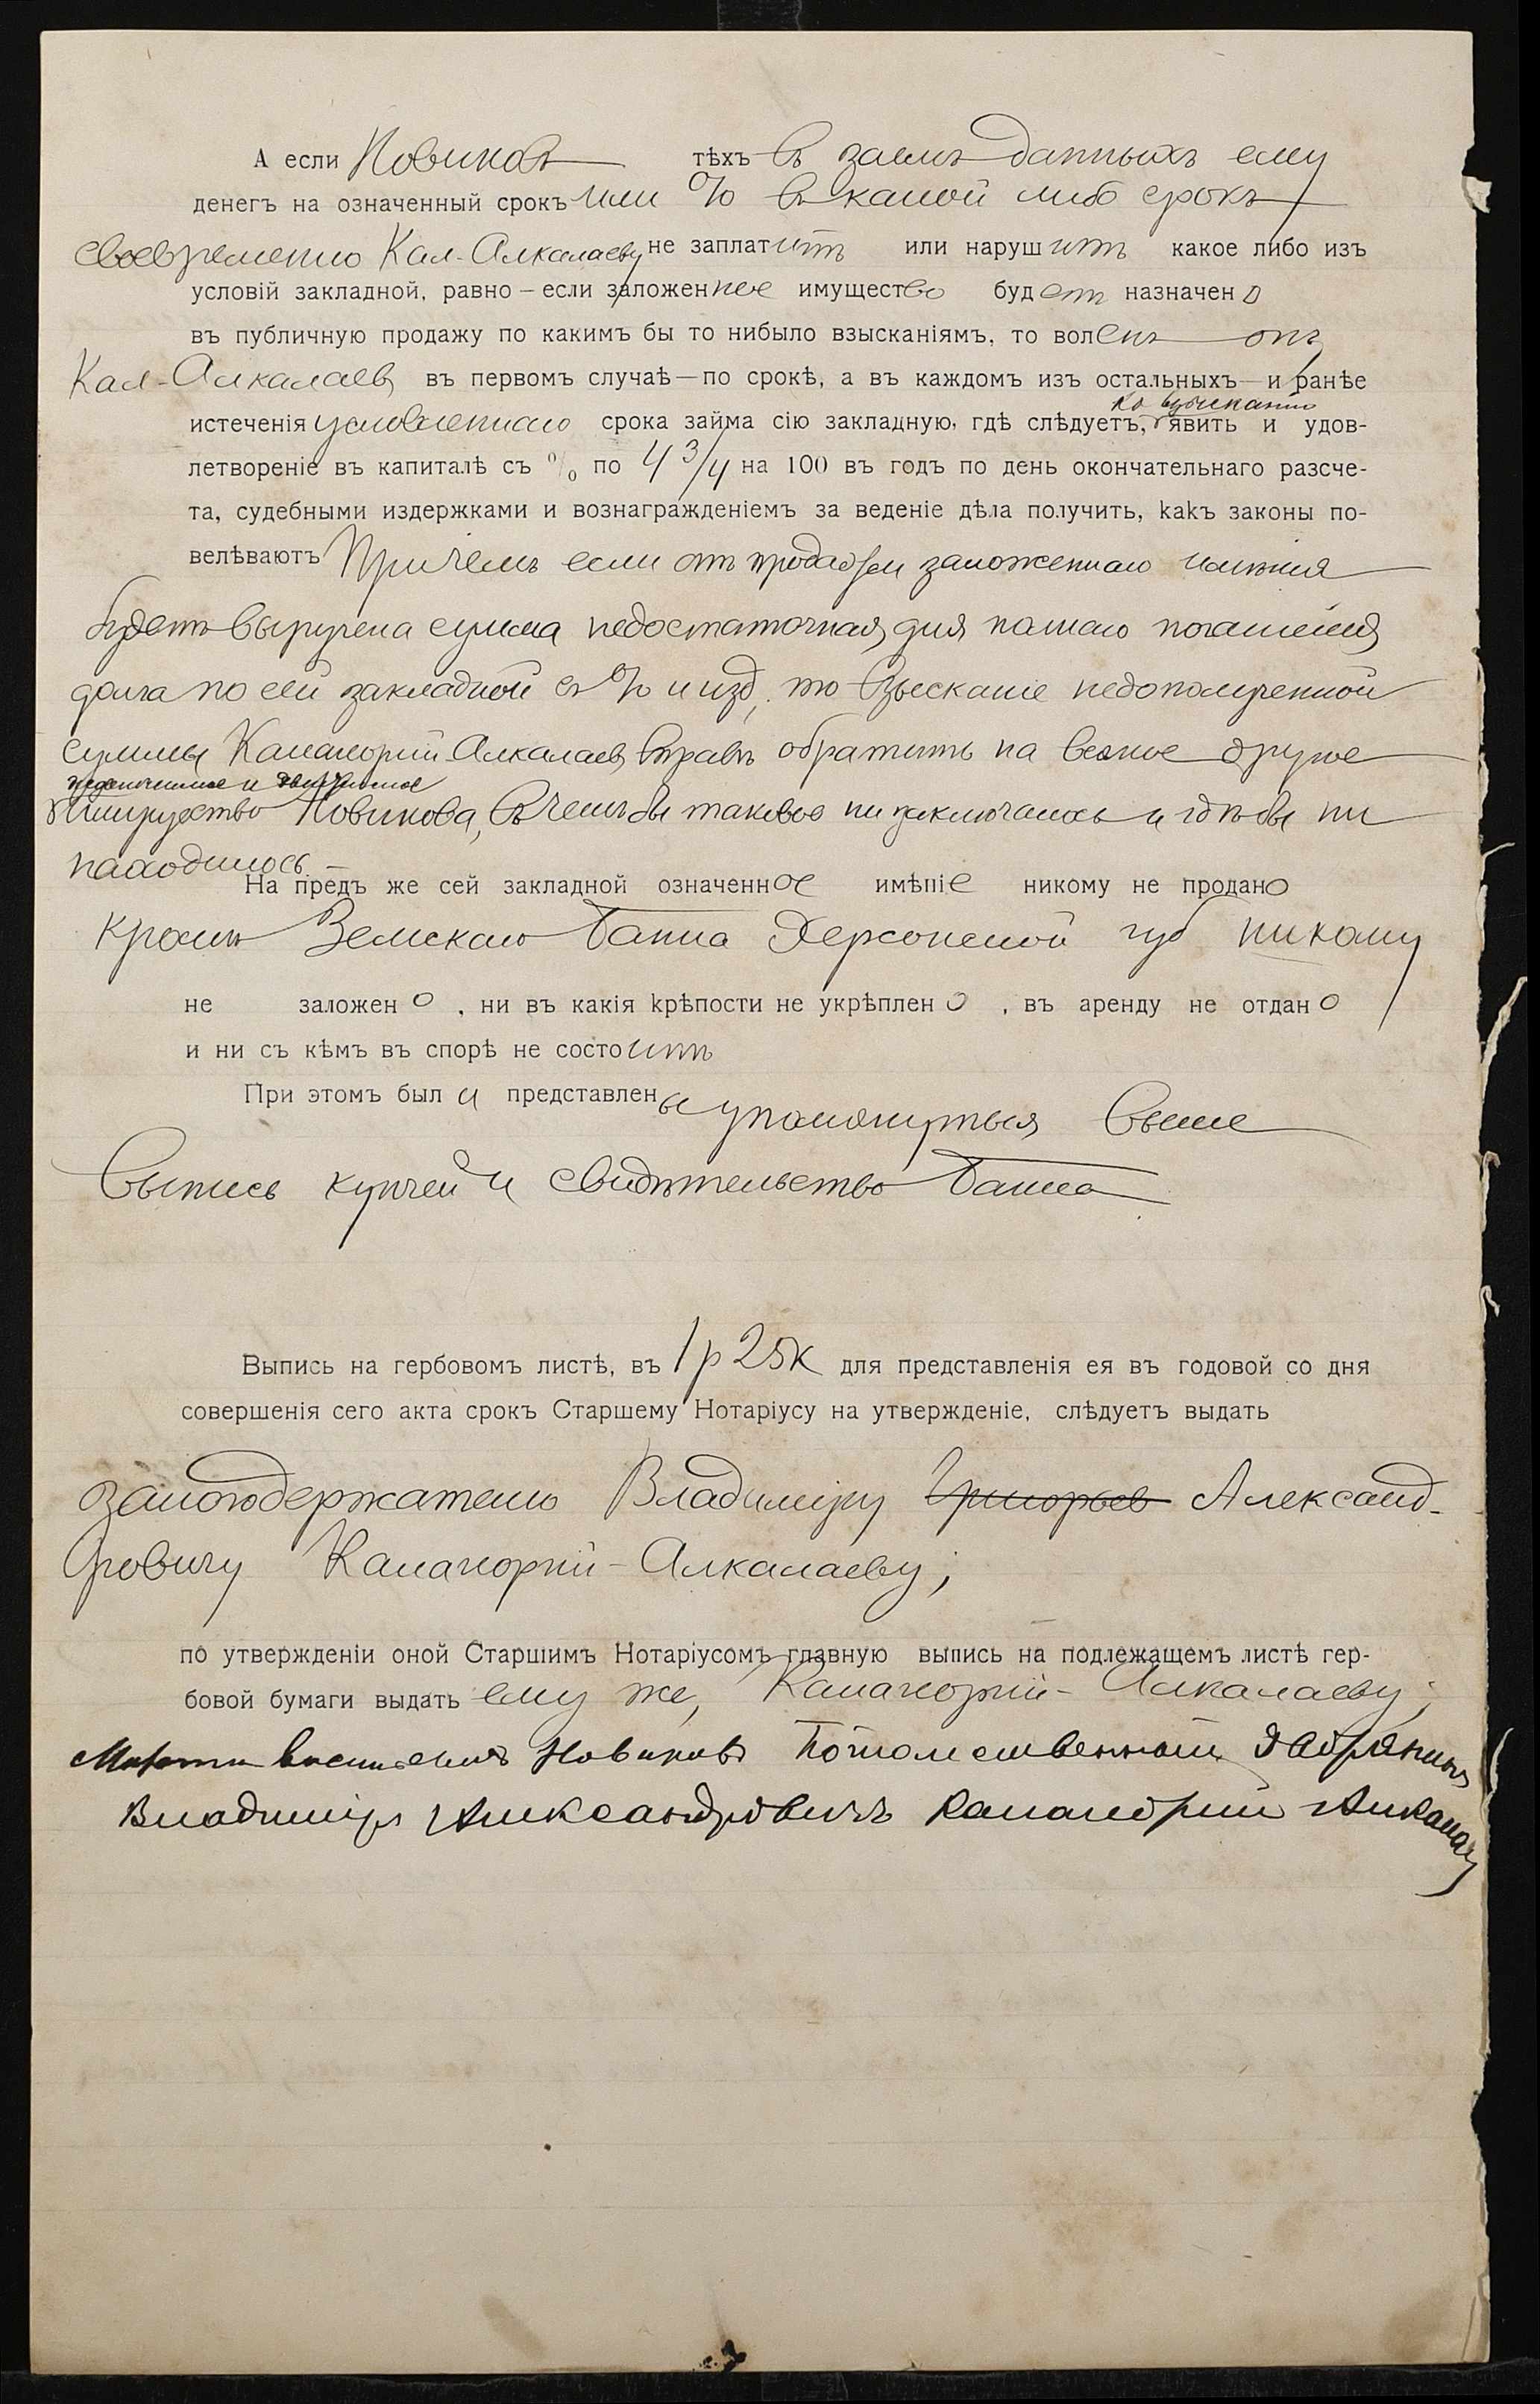 А если Новиковъ тѣхъ въ заемъ данныхъ ему
денегъ на означенный срокъ или % въ какой либо срокъ
своевременно Кал-Алкалаеву не заплатитъ или нарушитъ какое либо изъ
условій закладной, равно – если заложенное имущество будетъ назначено
въ публичную продажу по какимъ бы то нибыло взысканіямъ, то воленъ онъ
Кал-Алкалаевъ въ первомъ случаѣ — по срокѣ, а въ каждомъ изъ остальныхъ — и ранѣе
ко взысканію
истеченія условленнаго срока займа сію закладную, гдѣ слѣдуетъ, явить и удов-
летвореніе въ капиталѣ съ % по 4 3/4 на 100 въ годъ по день окончательнаго разсче-
та, судебными издержками и вознагражденіемъ за веденіе дѣла получить, какъ законы по-
велѣваютъ Причемъ если отъ продажи заложеннаго имѣнія
будетъ выручена сумма недостаточная для полнаго погашенія
долга по сей закладной съ % и изд, то взысканіе недополученной
суммы Каланчорій Алкалаевъ вправѣ обратить на всякое другое
недвижимое и движимое
имущество Новикова, въ чемъ бы таковое ни заключалось и гдѣ бы ни
находилось. —
На предъ же сей закладной означенное имѣніе никому не продано
кромѣ Земскаго Банка Херсонской губ никому
не заложено, ни въ какія крѣпости не укрѣплено, въ аренду не отдано
и ни съ кѣмъ въ спорѣ не состоитъ
При этомъ были представлены упомянутыя выше
выпись купчей и свидѣтельство Банка
Выпись на гербовомъ листѣ, въ 1 р 25 к для представленія ея въ годовой со дня
совершенія сего акта срокъ Старшему Нотаріусу на утвержденіе, слѣдуетъ выдать
залогодержателю Владиміру Григорьев Александ-
ровичу Каланчорій-Алкалаеву;
по утвержденіи оной Старшимъ Нотаріусомъ главную выпись на подлежащемъ листѣ гер-
бовой бумаги выдать ему же, Каланчорій-Алкалаеву;
Новиковъ Потомственный Дворянинъ
Владиміръ Александровичъ Каланчорій Алкалаевъ